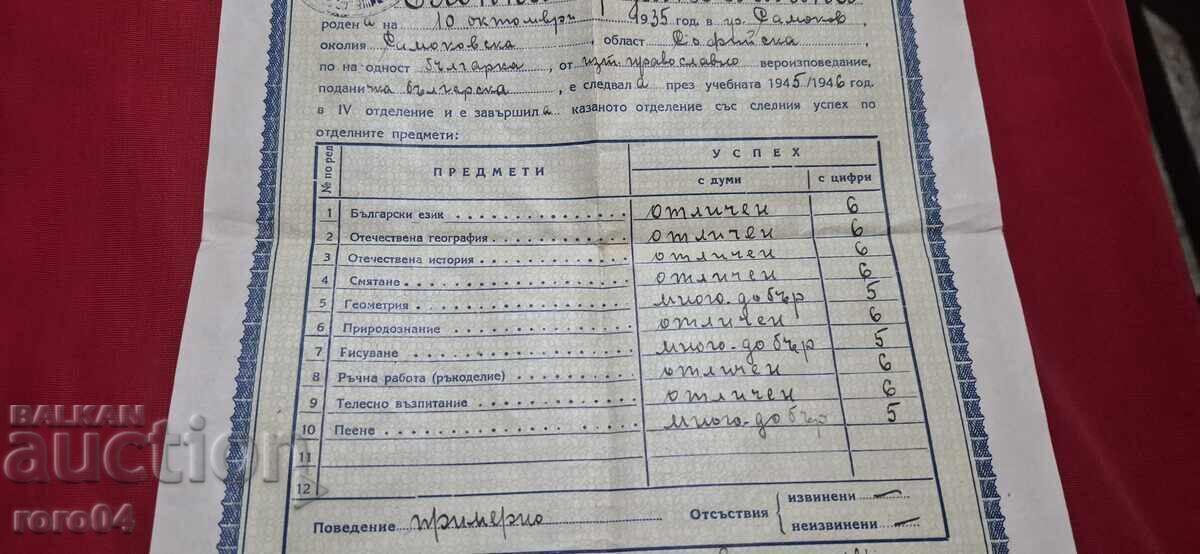 родена на 10 октомврь 1935 год. в гр. Самоков,
околия Самоковска, област Софийска,
по на одност българка, от изт. православно вероизповедание,
подани ка българска, е следвала през учебната 1945/1946 год.
в IV отделение и е завършила казаното отделение със следния успех по
отделните предмети:
№ по ред ПРЕДМЕТИ УСПЕХ
с думи с цифри
1 Български език отличен 6
2 Отечествена география отличен 6
3 Отечествена история отличен 6
4 Смятане отличен 6
5 Геометрия много добър 5
6 Природознание отличен 6
7 Рисуване много добър 5
8 Ръчна работа (ръкоделие) отличен 6
9 Телесно възпитание отличен 6
10 Пеене много добър 5
11
12
Поведение примерно Отсъствия извинени —
неизвинени —
BALKAN
auction
roro04